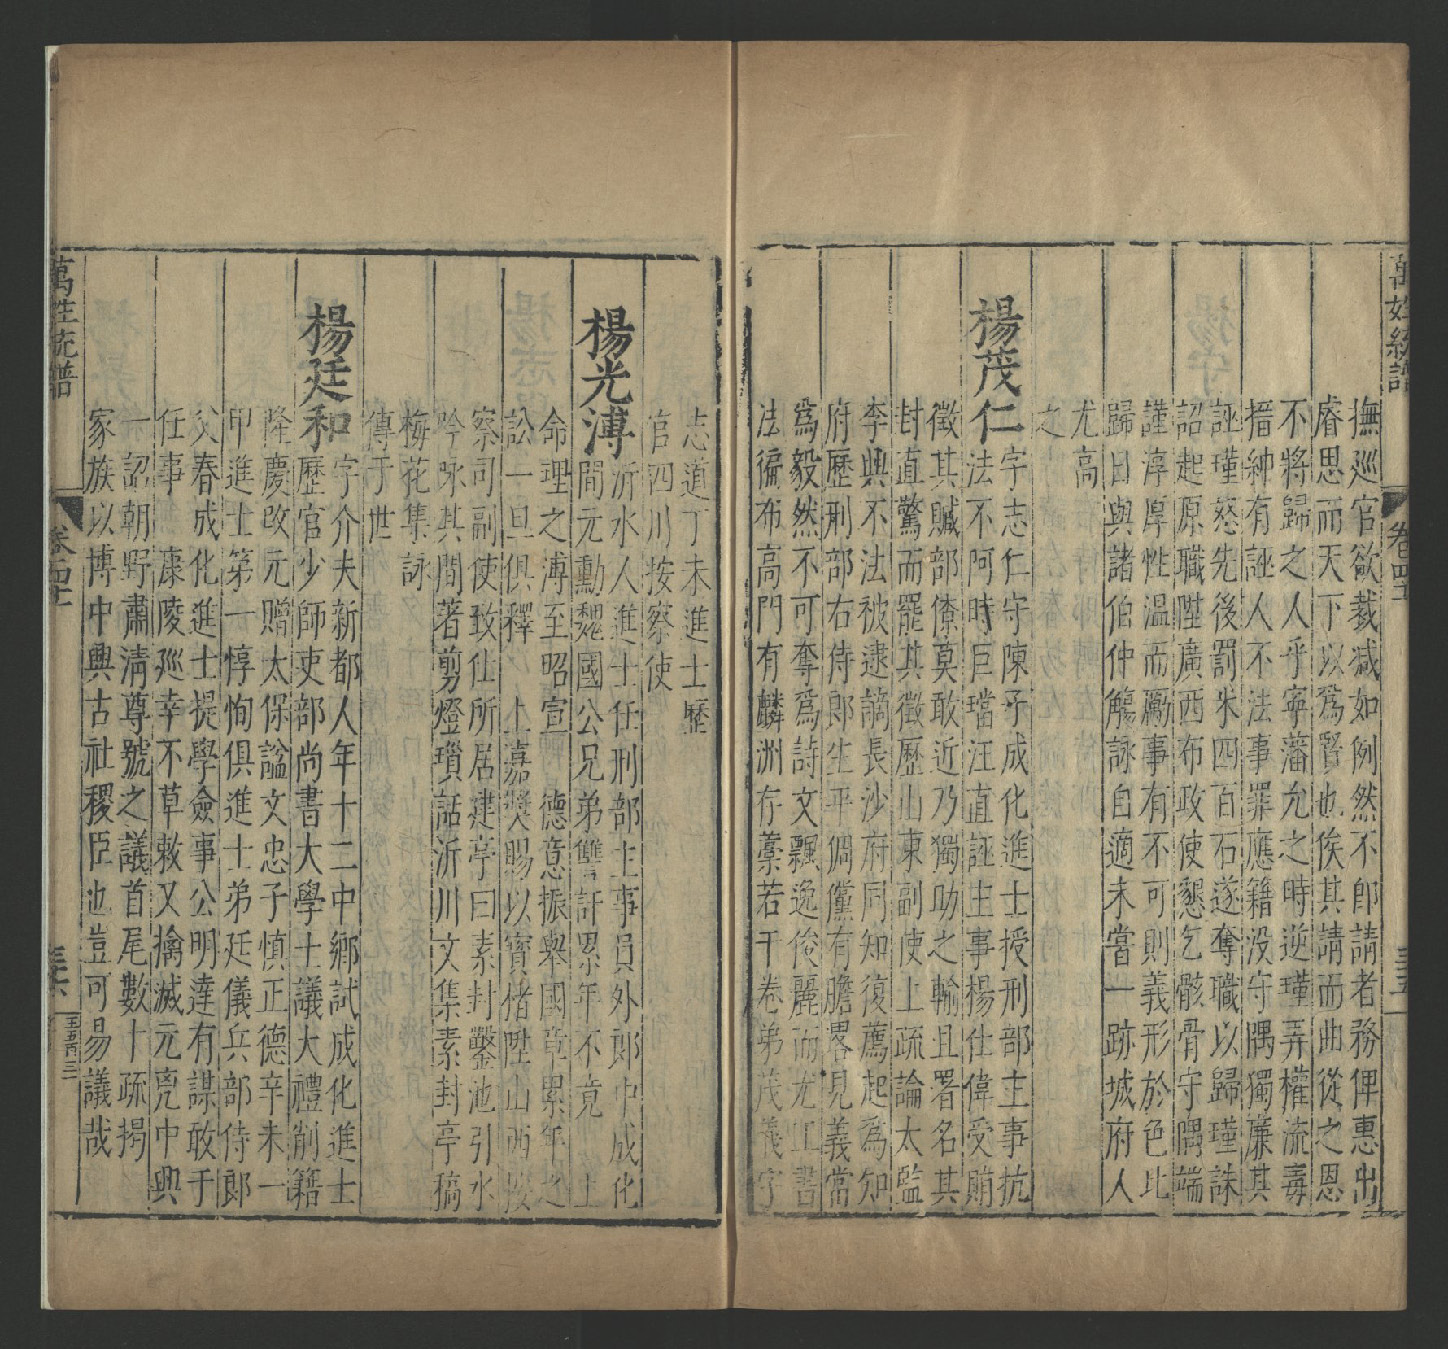 萬姓統譜
卷四十一
三十五
撫巡官欲裁減如例然不卽請者務俾惠出
睿思而天下以爲賢也俟其請而曲從之恩
不將歸之人乎寧藩允之時逆瑾弄權流毒
搢紳有誣人不法事罪應籍没守隅獨廉其
誣瑾怒先後罰米四百石遂奪職以歸瑾誅
詔起原職陞廣西布政使懇乞骸骨守隅端
謹淳厚性溫而勵事有不可則義形於色比
歸日與諸伯仲觴詠自適未嘗一跡城府人
尤高
之
楊茂仁
字志仁守陳子成化進士授刑部主事抗
法不阿時巨璫汪直誣主事楊仕偉受賄
徵其贓部僚莫敢近乃獨助之輸且署名其
封直驚而罷其徵歷山東副使上疏論太監
李興不法被逮謫長沙府同知復薦起為知
府歷刑部右侍郎生平倜儻有膽畧見義當
爲毅然不可奪爲詩文飄逸俊麗而尤工書
法徧布高門有麟洲存藁若干卷弟茂義字
志道丁未進士歷
官四川按察使
楊光溥
沂水人進士任刑部主事員外郎中成化
間元勳魏國公兄弟讐訐累年不竟 上
命理之溥至昭宣 德意振舉國章累年之
訟一旦俱釋 上嘉獎賜以寳楮陞山西按
察司副使致仕所居建亭曰素封鑿池引水
吟咏其間著剪燈瑣話沂川文集素封亭稿
梅花集詠
傳于世
楊廷和
字介夫新都人年十二中鄉試成化進士
歷官少師吏部尚書大學士議大禮削籍
隆慶改元贈太保謚文忠子慎正德辛未一
甲進士第一惇恂俱進士弟廷儀兵部侍郎
父春成化進士提學僉事公明達有謀敢于
任事 康陵巡幸不草敕又擒滅元兇中興
一詔朝野肅清尊號之議首尾數十疏揭
家族以博中興古社稷臣也豈可易議哉
萬姓統譜
卷四十一
三十六